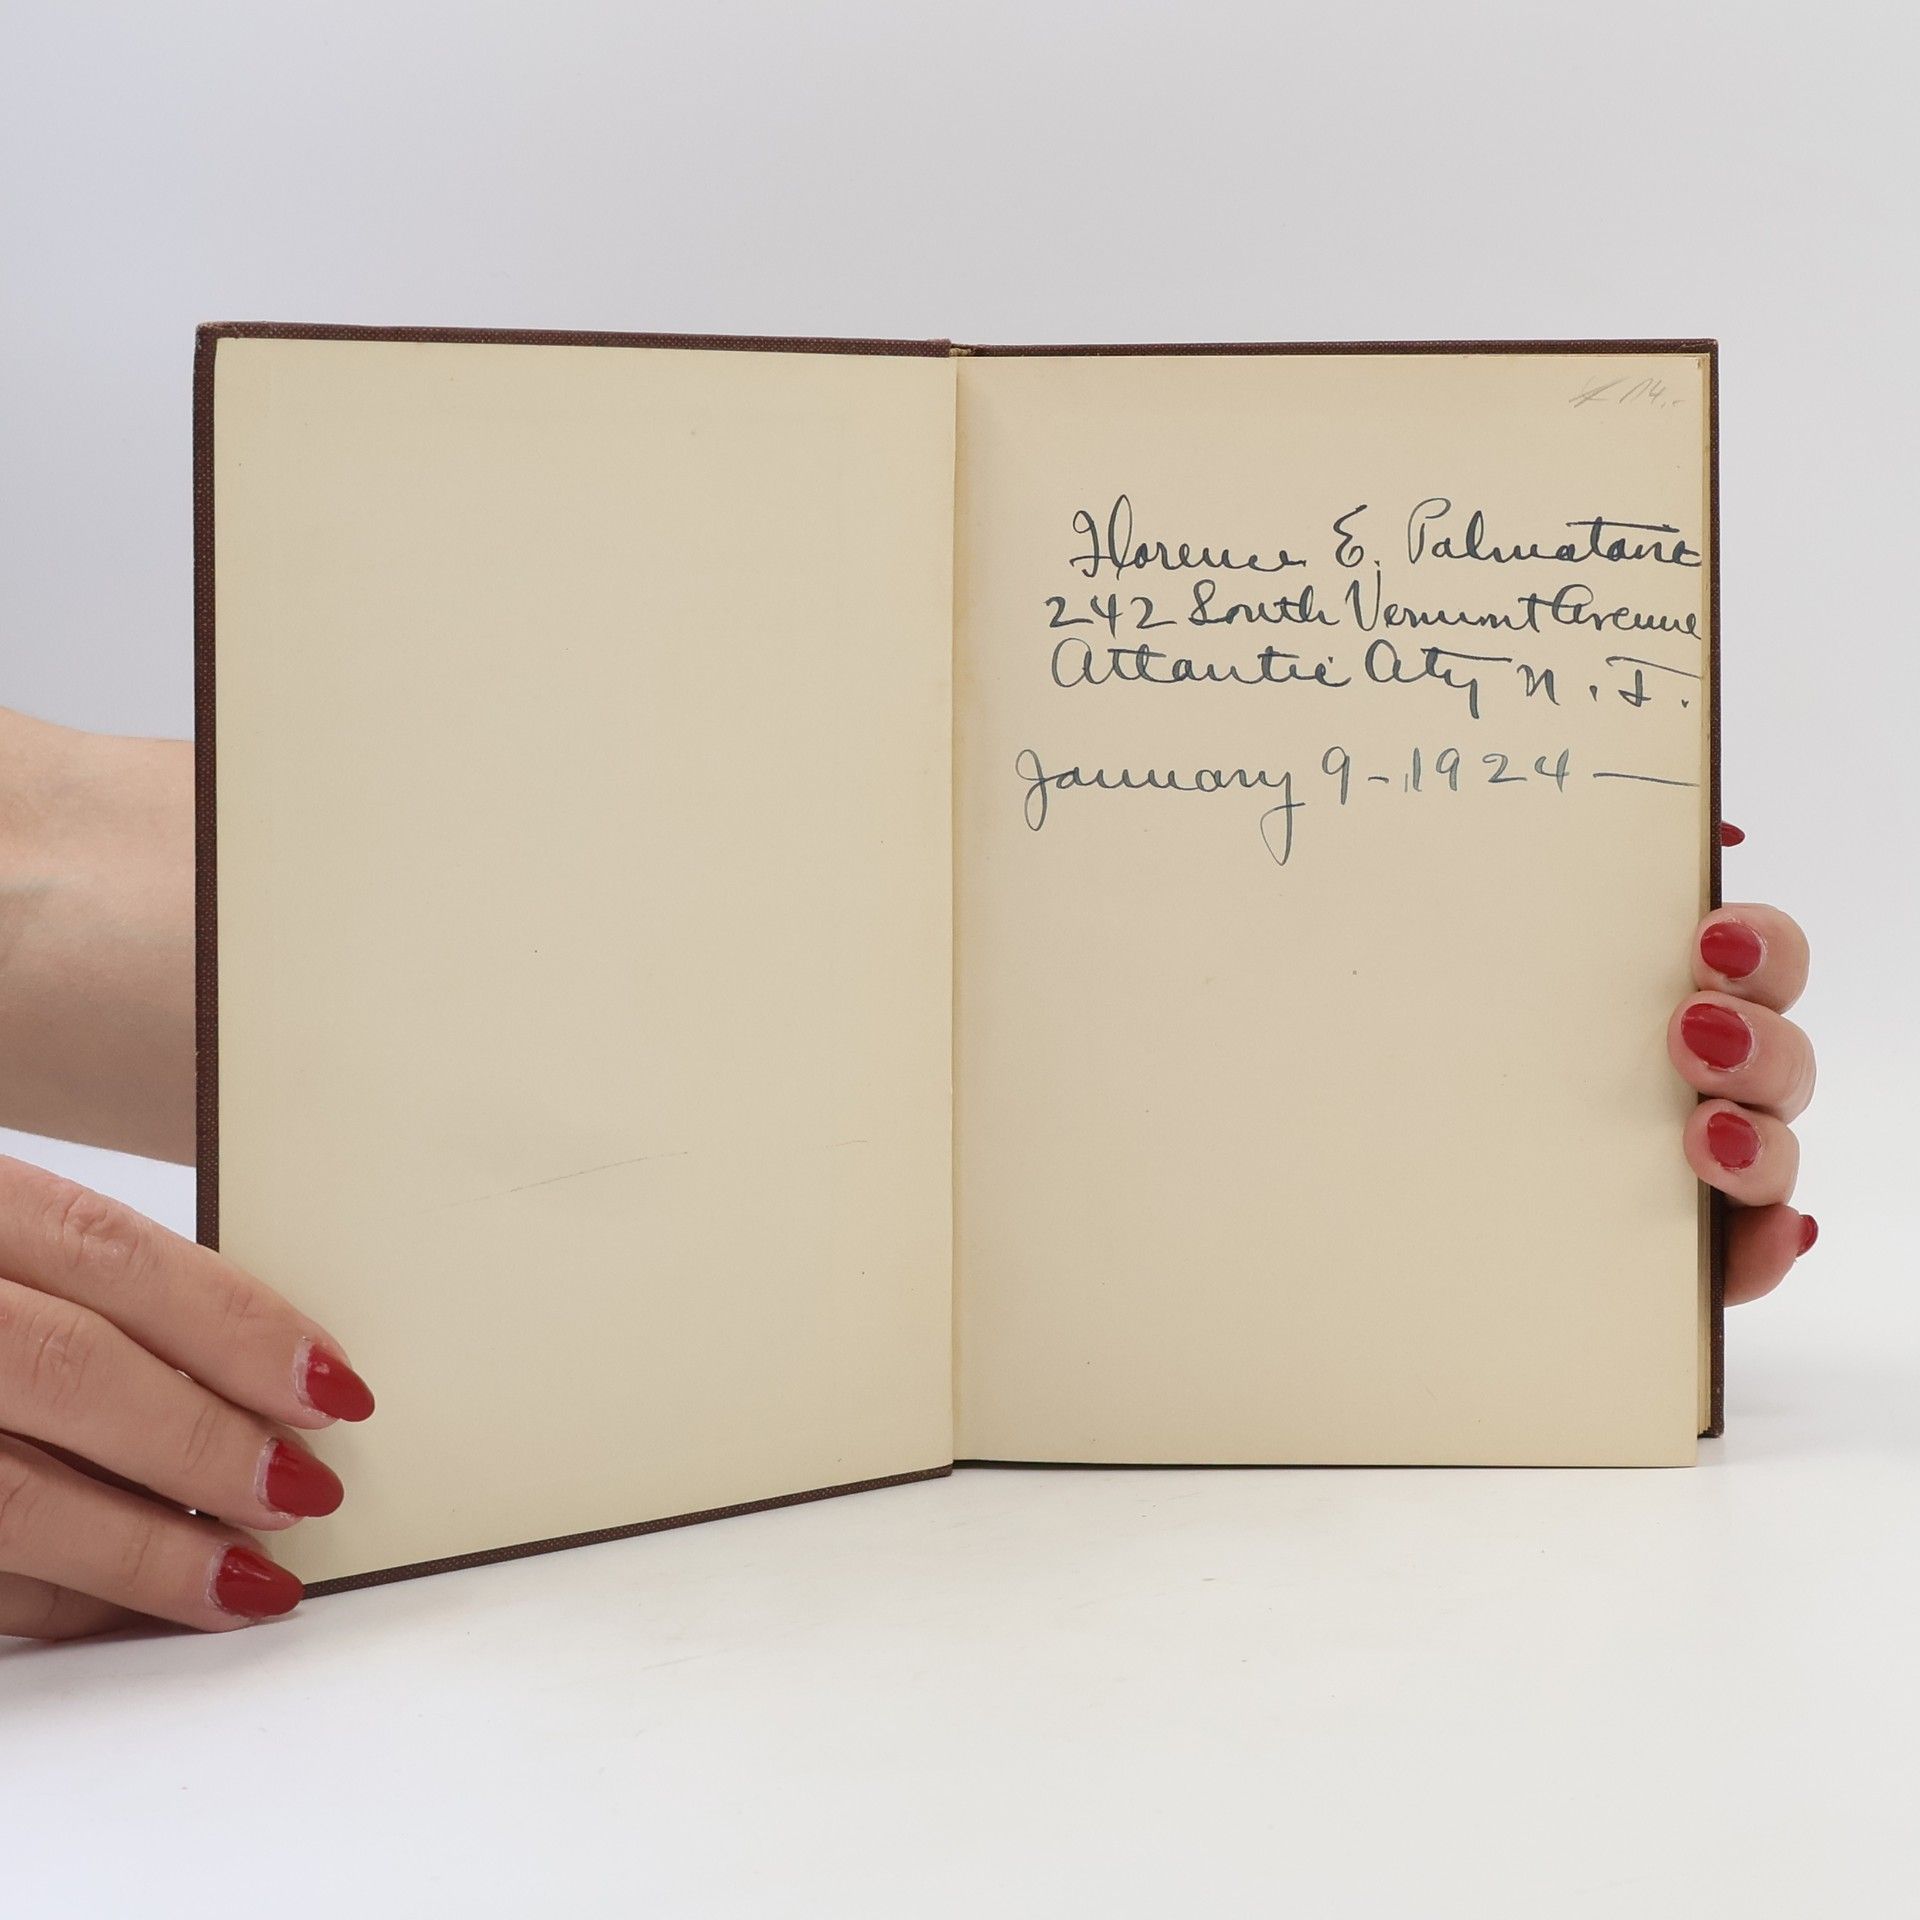 Florence E. Palmataire
242 South Vermont Avenue
Atlantic City N. J.
January 9 - 1924 —